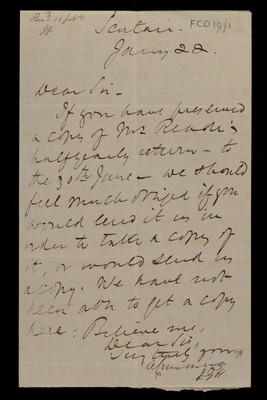 Scutari.
FCO19/1
Jany 22.
Dear Sir -
If you have preserved
a copy of Mr Reade's
halfyearly return - to
the 30th June - we should
feel much obliged if you
would lend it us in
order to take a copy of
it, or would send us
a copy. We have not
been able to get a copy
here: Believe me,
Dear Sir,
Very truly yours